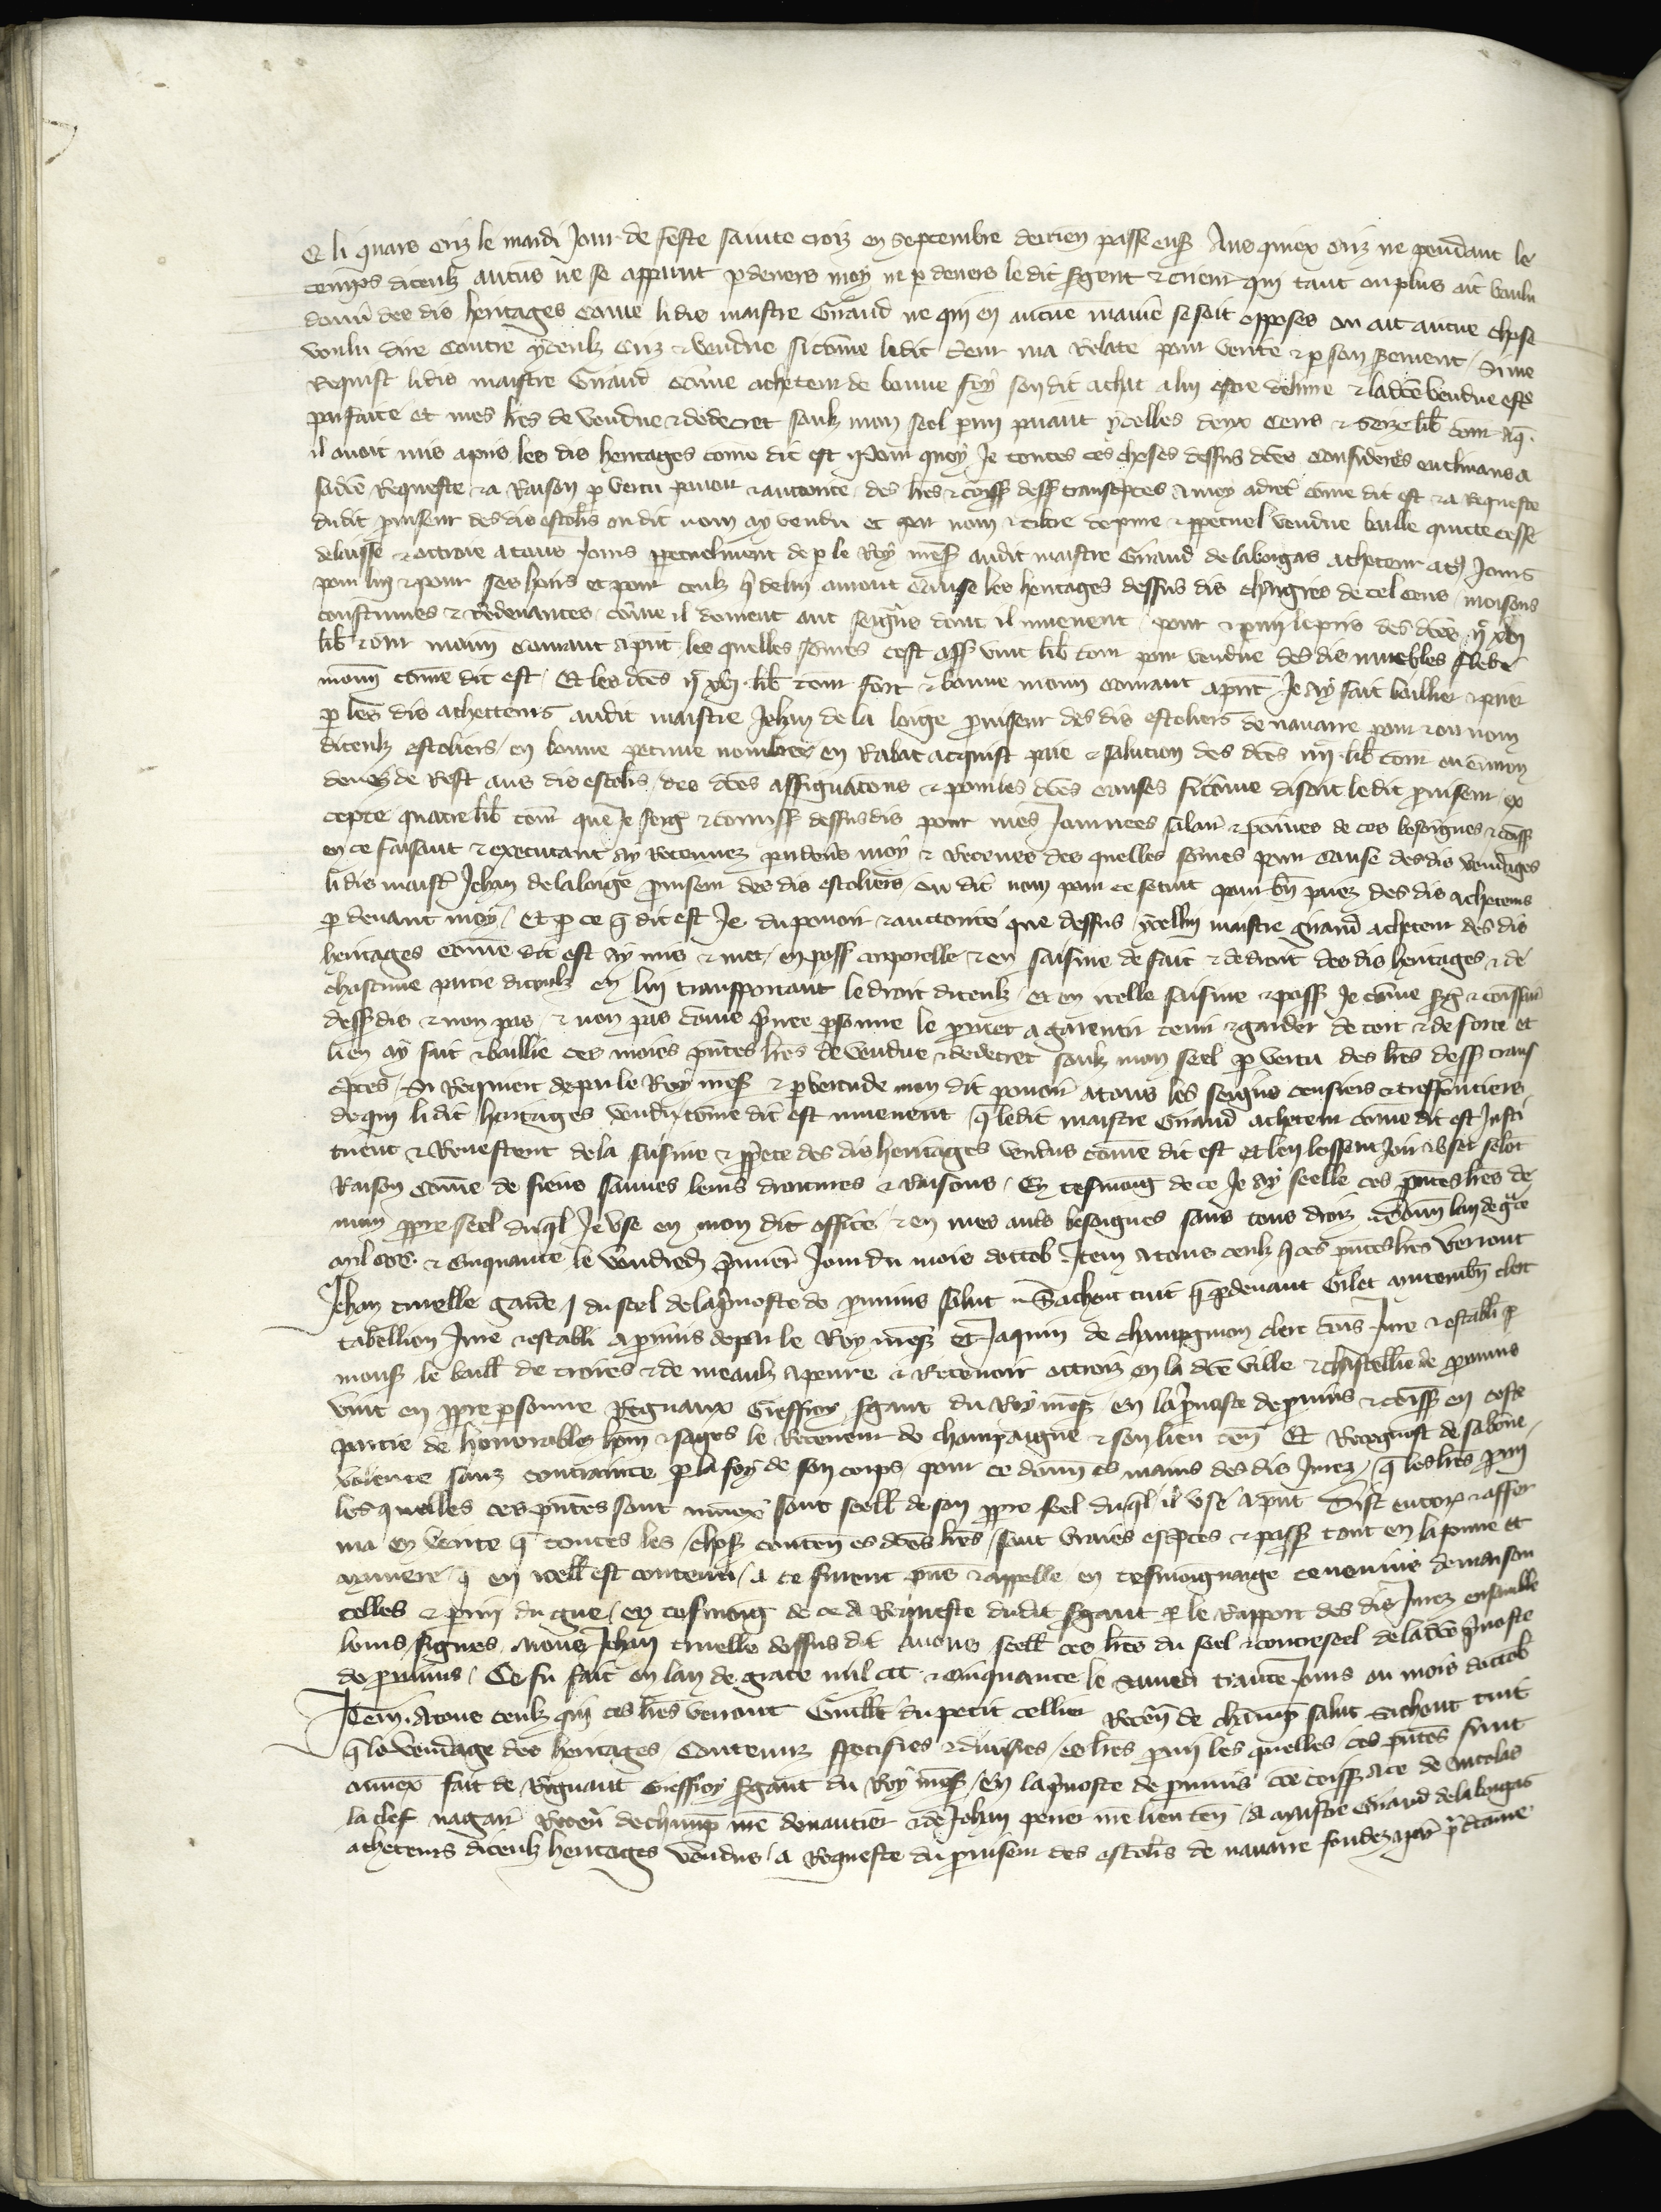 Et li quars criz le mardi jour de feste sainte croiz en septembre derrien passe ensi Aus quiex criz ne pendant le
temps diceulz aucuns ne se apparut p devers moy ne p devers le dit sgent & crieur qui tant ou plus ait voulu
donn des dis heritages come li dis maistre Giraud ne qui en aucune maniere se soit opposes ou ait aucune chose
voulu dire contre yceulz criz & vendue si come le dit crieur ma relate pour verite & p son serment / Si me
requist li dis maistre Giraud come acheteur de bonne foy son dit achat a luy estre delivre & la dce vendue estre
parfaite / et mes lres de vendue & de decret soulz mon seel parmi paiant ycelles deux cens & seize lib torn
il avoit mis a pris les dis heritages come dit est Pour quoy Je toutes ces choses dessus dces considerees enclinans a
sa dce requeste & a raison p vertu povoir & auctorite des lres & comiss dess transcptes a moy adrec come dit est & a requeste
du dit proviseur des dis escoliers ou dit nom ay vendu et par nom & titre de pure & ppetuel vendue baille quitte cesse
delaisse & ottroie a tous jours ppetuelment de p le Roy nres audit maistre Giraud de labougas acheteur a tous jours
pour luy & pour ses hoirs et pour ceulz q de luy auront cause les heritages dessus dis chargies de tel cens / moisons
coustumes & redevances / come il doivent aus seigns dont il muevent / pour & parmi le pris des dces ijc xvj
lib torn monn courant a pnt / les quelles somes cest ass vint lib torn pour vendue des dis muebles flebe
monn come dit est / Et les dces ijc xvj lib torn fort & bonne monn courant a pnt Je ay fait baillier & paier
p les dis achetteurs audit maistre Jehan de la loige proviseur des dis escoliers de navarre pour & ou nom
diceulz escoliers / en bonne pecune nombree en rabat acquist paie & solucion des dces lib torn
deuz de rest aus dis escoliers / des dces assignacions & pour les dces causes si come disoit le dit proviseur / ex
cepte quatre lib torn que Je serg & comiss dessus dis pour mes journees salair & poines de ces besoignes & comiss
en ce faisant & executant ay retenuez p devers moy & receues des quelles somes pour cause des dis vendages
li dis maistre Jehan de la loige proviseur des dis escoliers ou dit nom pour ce se tint pour bn paiez des dis acheteurs
p devant moy / Et p ce q dit est Je du povoir & auctorite que dessus / ycelluy maistre giraud acheteur des dis
heritages come dit est ay mis & met / en poss corporelle & en saisine de fait & de droit des dis heritages & de
chascune partie diceulz en luy transportant le droit diceulz / et en icelle saisine & poss Je come sg & comiss
dess dis & non pas / & non pas come privee psonne le promet a garentir tenir & garder de tort & de force et
len ay fait & baillie ces moies pntes lres de vendue & de decret soulz mon seel p vertu des lres dess trans
cptes / Si requier de par le Roy nres & p vertu de mon dit povoir a tous les seigns censiers & treffonciers
de qui li dit heritages venduz come dit est muevent q le dit maistre Giraud acheteur come dit est Justi
tuent & revestent de la saisine & pprete des dis heritages vendus come dit est et len lessent joir & user selon
raison come de siens sauves leurs droitures & raisons / En tesmoing de ce Je ay seelle ces pntes lres de
mon ppre seel duql Je use en mon dit office & en mes autres besoignes sauf tous droiz Donn lan de gce
mil ccc & cinquante le vendredi premier jour du mois doctob Item A tous ceulz q ces pntes lres verront
Jehan truelle garde du seel de la prevoste de provins salut Sachent tuit q p devant Gilet clerc
tabellion jure & establi a provins de par le Roy nres et Jaquin de champgiron clerc jure & establi p
mons le baill de troies & de meaulz a penre & recevoir ottroiz en la dce ville & chastellie de provins
vint en ppre psonne Regnaux Gieffroy sgant du Roy nres en la prevoste de provins & comiss en ceste
partie de honorables homs & sages le receveur de champaigne & son lieu ten Et recognust de sa bone
volente sanz contrainte p la foy de son corps pour ce donn es mains des dis jurez / q les lres parmi
les quelles ces pntes sont annex sont seell de son ppre seel duql il use a pnt Dist encor & affer
ma en verite q toutes les choses conten es dces lres / sont vraies & pass tout en la forme et
maniere q en icell est contenu / A ce furent pns & appelle en tesmoingnaige de maison
celles & du gue / en tesmoing de ce A requeste du dit sgant p le rapport des dis jurez ensemble
leurs signes Nous Jehan truelle dessus dit avons seell ces lres du seel & contreseel de la dce prevoste
de provins / Ce fu fait en lan de grace mil ccc & cinquante le samedi trante jours ou mois doctob
Item A tous ceulz qui ces lres verront Guill du petit cellier recev de champ salut Sachent tuit
q le vendage des heritages / contenuz specifies & divises / es lres parmi les quelles ces pntes sunt
annex fait de Regnaut Gieffroy sgant du Roy nres / en la prevoste de provins comiss a ce de nicolas
la clef nagair recev de champ nre devantier & de Jehan pever nre lieu ten / A maistre Giraud de labougas
acheteurs diceulz heritages venduz / A requeste du proviseur des escoliers de navarre fondez a pair p dame